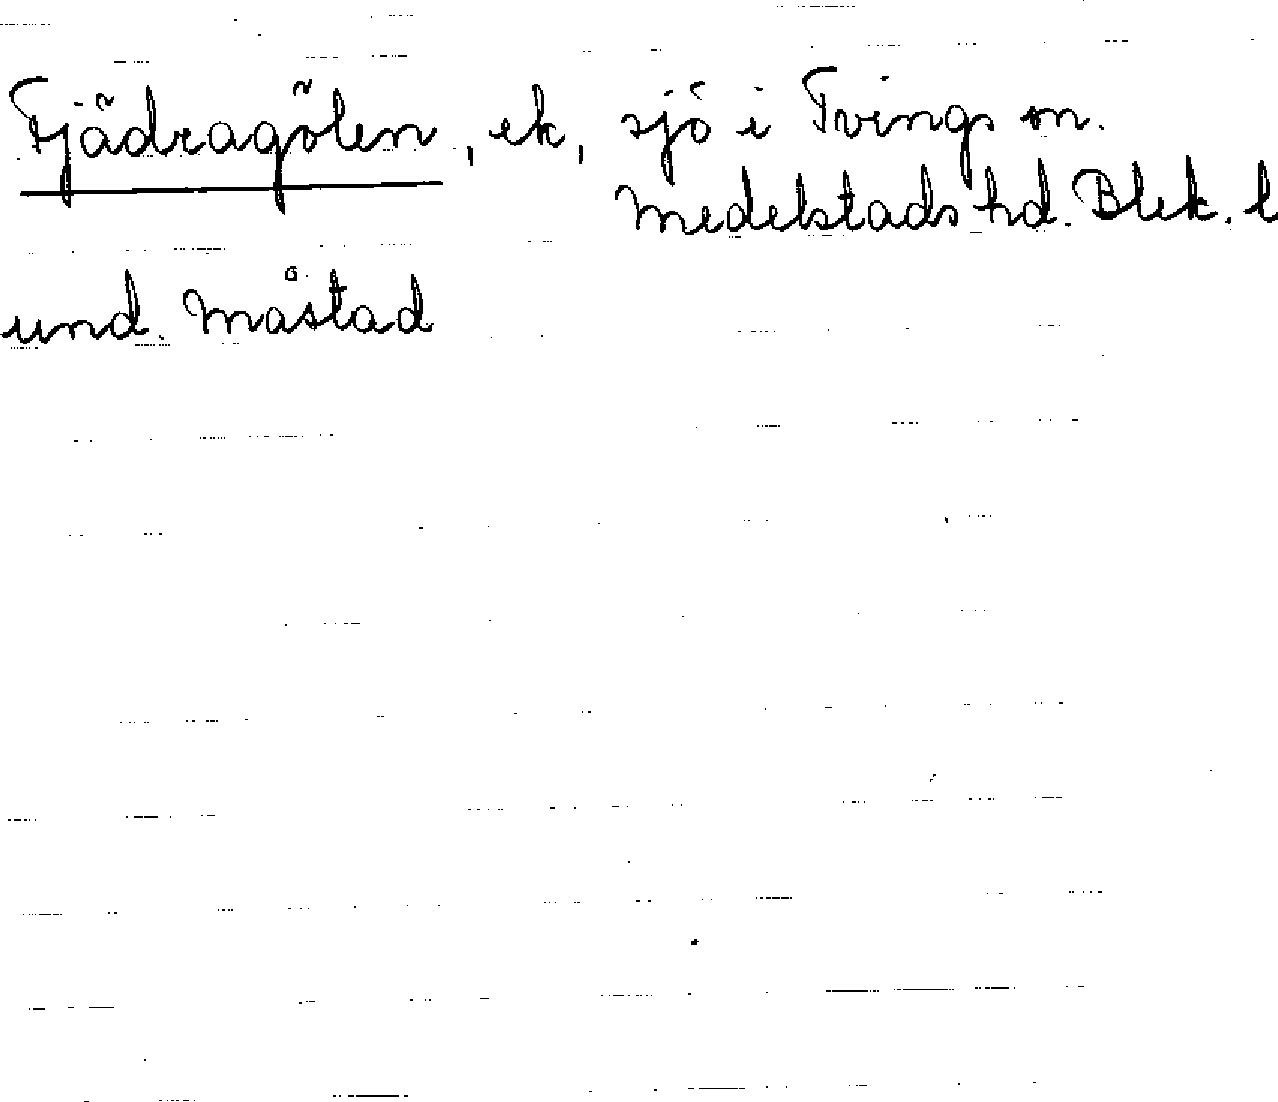 Fjädragölen, ek, sjö i Tvings sn.
Medelstads hd. Blek. l
und. Måstad